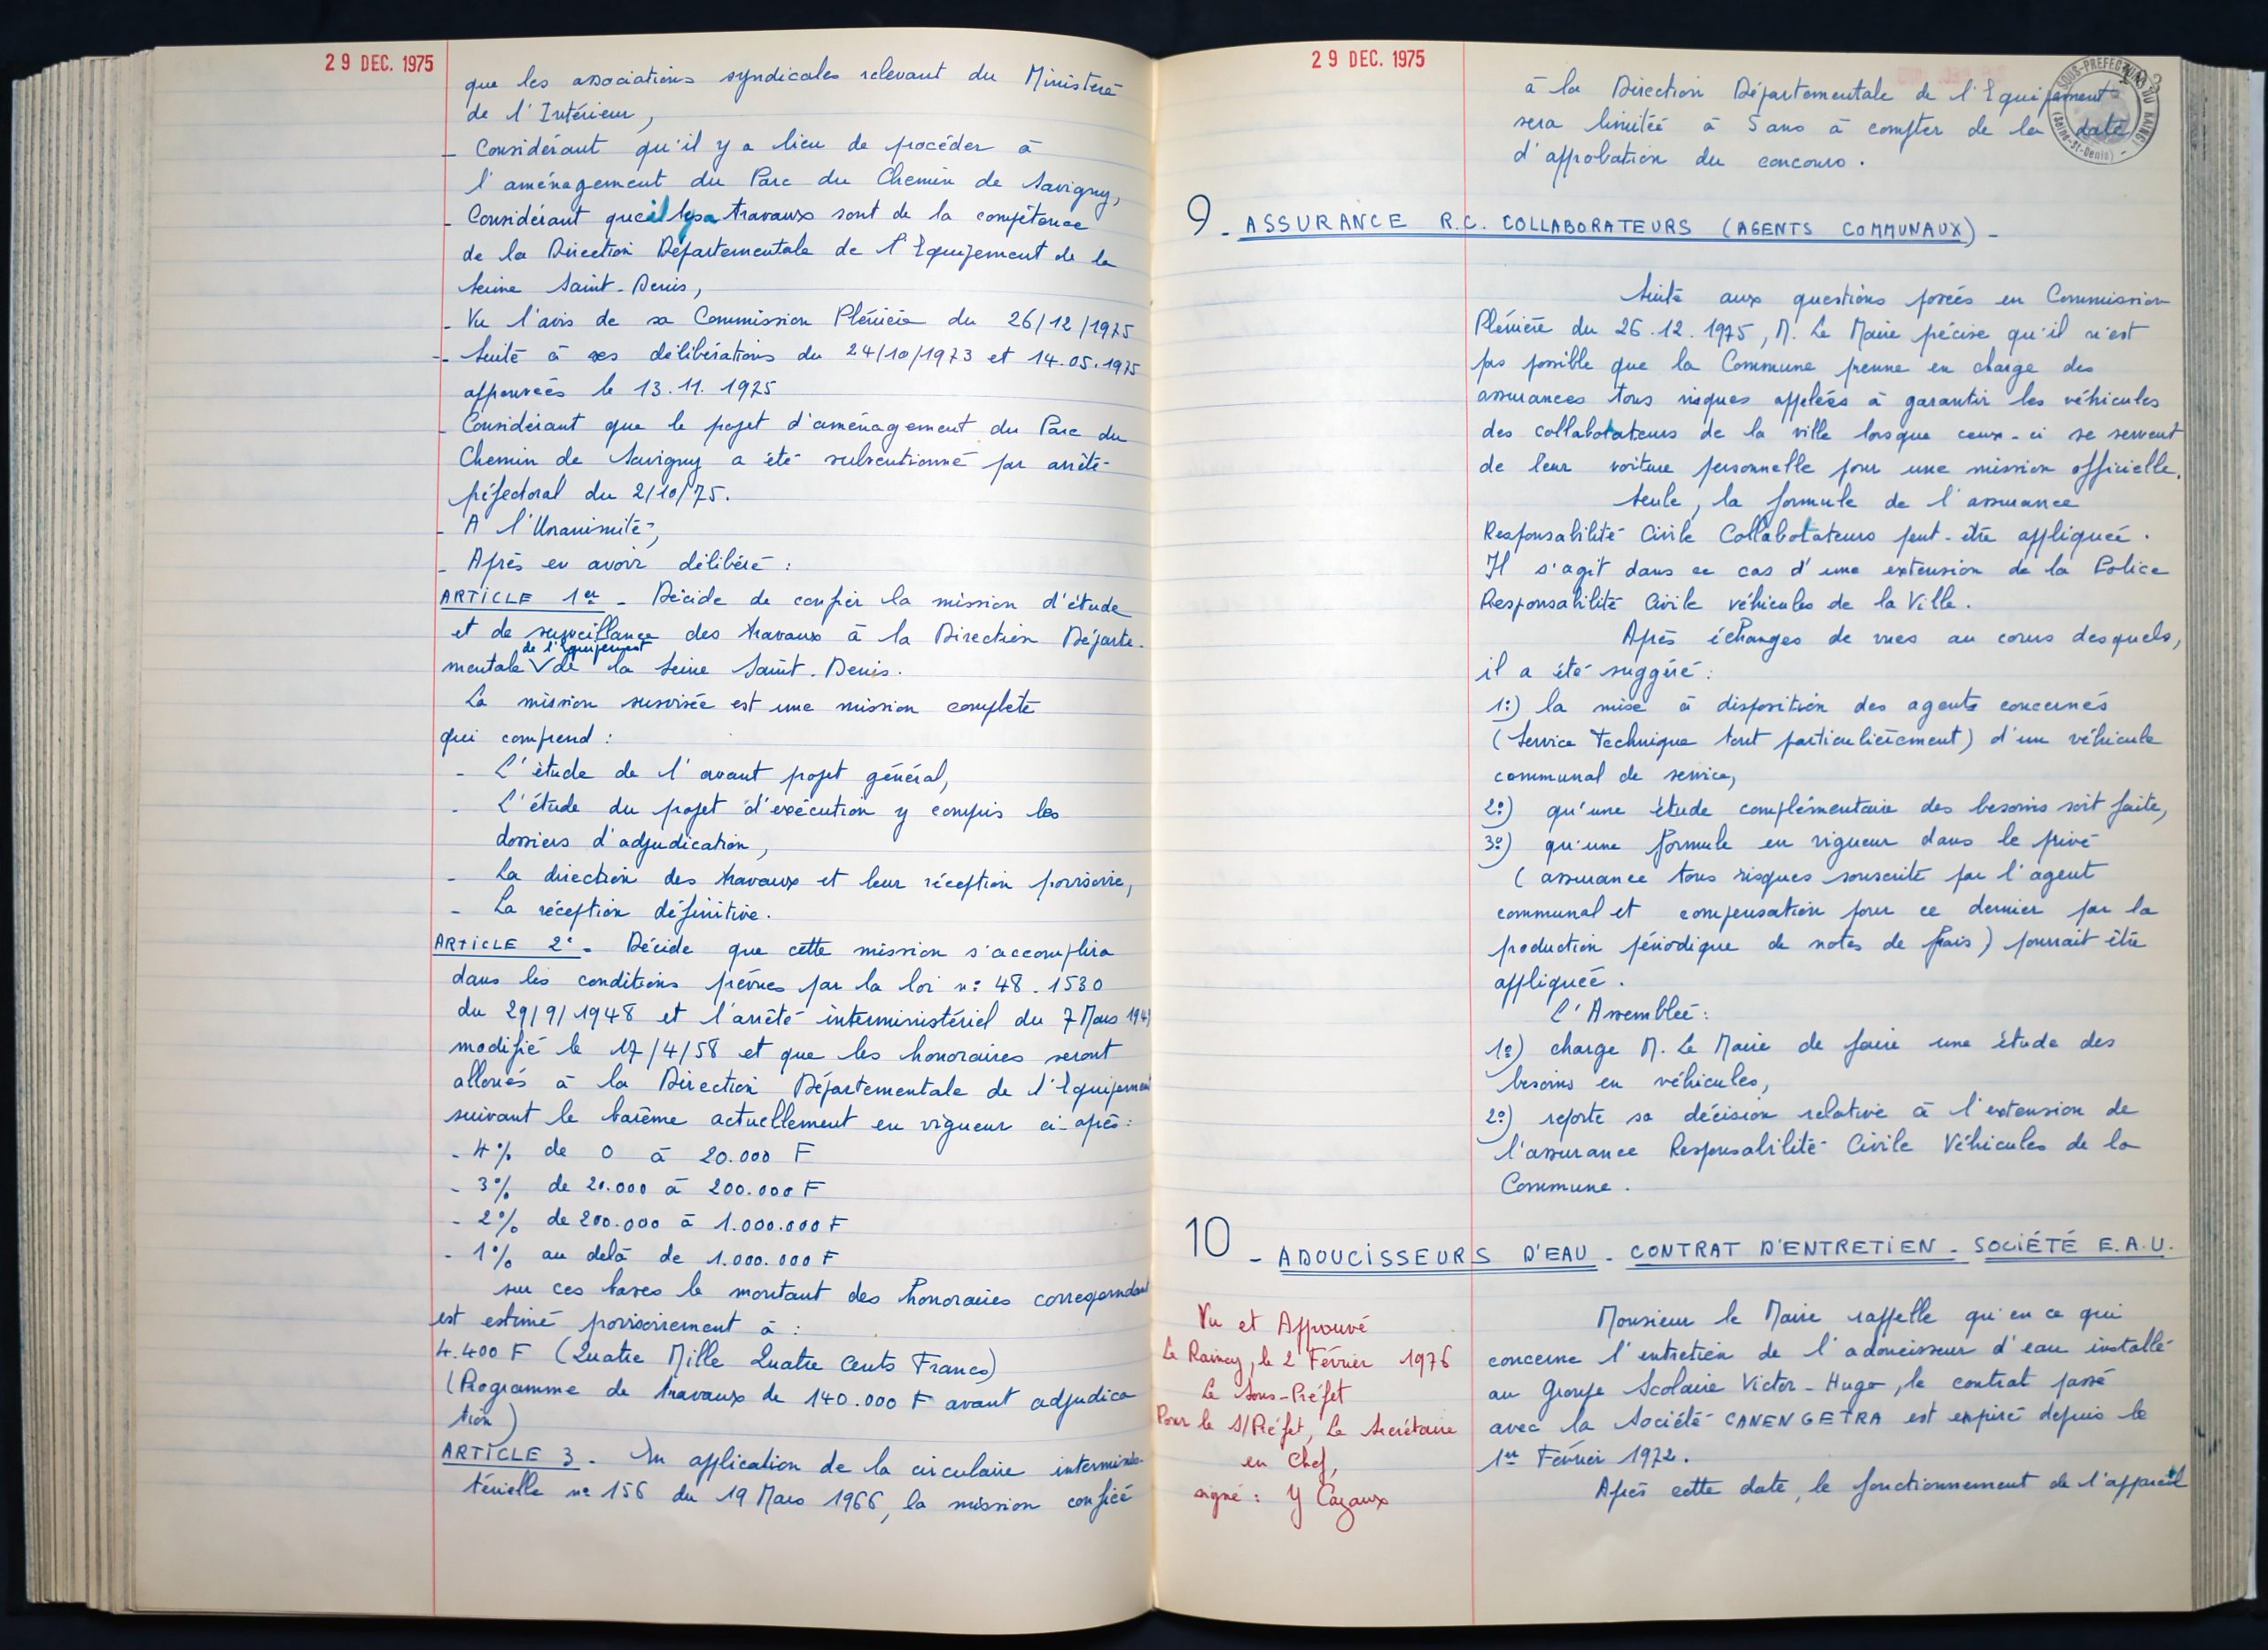 29 DEC. 1975
que les associations syndicales relevant du Ministère
de l'Intérieur,
- Considérant qu'il y a lieu de procéder à
l'aménagement du Parc du Chemin de Savigny,
- Considérant que les travaux sont de la compétence
de la Direction Départementale de l'Equipement de la
Seine Saint-Denis,
- Vu l'avis de sa Commission Plénière du 26/12/1975
- Suite à ses délibérations du 24/10/1973 et 14.05.1975
approuvées le 13.11.1975
- Considérant que le projet d'aménagement du Parc du
Chemin de Savigny a été subventionné par arrêté
préfectoral du 2/10/75.
- A l'Unanimité,
- Après en avoir délibéré :
ARTICLE 1er - Décide de confier la mission d'étude
et de surveillance des travaux à la Direction Départe-
de l'Equipement
mentale V de la Seine Saint-Denis.
La mission susvisée est une mission complète
qui comprend :
- L'étude de l'avant projet général,
- L'étude du projet d'exécution y compris les
dossiers d'adjudication,
- La direction des travaux et leur réception provisoire,
- La réception définitive.
ARTICLE 2e - Décide que cette mission s'accomplira
dans les conditions prévues par la loi n° 48.1530
du 29/9/1948 et l'arrêté interministériel du 7 Mars 194
modifié le 17/4/58 et que les honoraires seront
alloués à la Direction Départementale de l'Equipement
suivant le barème actuellement en vigueur ci-après :
- 4% de 0 à 20.000 F
- 3% de 20.000 à 200.000 F
- 2% de 200.000 à 1.000.000 F
- 1% au delà de 1.000.000 F
sur ces bases le montant des honoraires correspondant
est estimé provisoirement à :
4.400 F (Quatre Mille Quatre Cents Francs)
(Programme de travaux de 140.000 F avant adjudica
tion)
ARTICLE 3 - En application de la circulaire interminis-
térielle n° 156 du 19 Mars 1966, la mission confiée
29 DEC. 1975
SOUS-PREFECTURE DU RAINCY
(Seine-St-Denis)
à la Direction Départementale de l'Equipement
sera limitée à 5 ans à compter de la date
d'approbation du concours.
9 - ASSURANCE R.C. COLLABORATEURS (AGENTS COMMUNAUX) -
Suite aux questions posées en Commission
Plénière du 26.12.1975, M. Le Maire précise qu'il n'est
pas possible que la Commune prenne en charge des
assurances tous risques appelées à garantir les véhicules
des collaborateurs de la ville lorsque ceux-ci se servent
de leur voiture personnelle pour une mission officielle.
Seule, la formule de l'assurance
Responsabilité Civile Collaborateurs peut-être appliquée.
Il s'agit dans ce cas d'une extension de la Police
Responsabilité Civile véhicules de la Ville.
Après échanges de vues au cours desquels,
il a été suggéré :
1°) la mise à disposition des agents concernés
(Service Technique tout particulièrement) d'un véhicule
communal de service,
2°) qu'une étude complémentaire des besoins soit faite,
3°) qu'une formule en vigueur dans le privé
(assurance tous risques souscrite par l'agent
communal et compensation pour ce dernier par la
production périodique de notes de frais) pourrait être
appliquée.
L'Assemblée :
1°) charge M. Le Maire de faire une étude des
besoins en véhicules,
2°) reporte sa décision relative à l'extension de
l'assurance Responsabilité Civile Véhicules de la
Commune.
10 - ADOUCISSEURS D'EAU - CONTRAT D'ENTRETIEN - SOCIÉTÉ E.A.U.
Vu et Approuvé
Le Raincy, le 2 Février 1976
Le Sous-Préfet
Pour le S/Préfet, Le Secrétaire
en Chef,
signé : Y Cazaux
Monsieur le Maire rappelle qu'en ce qui
concerne l'entretien de l'adoucisseur d'eau installé
au Groupe Scolaire Victor-Hugo, le contrat passé
avec la Société CANENGETRA est expiré depuis le
1er Février 1972.
Après cette date, le fonctionnement de l'appareil